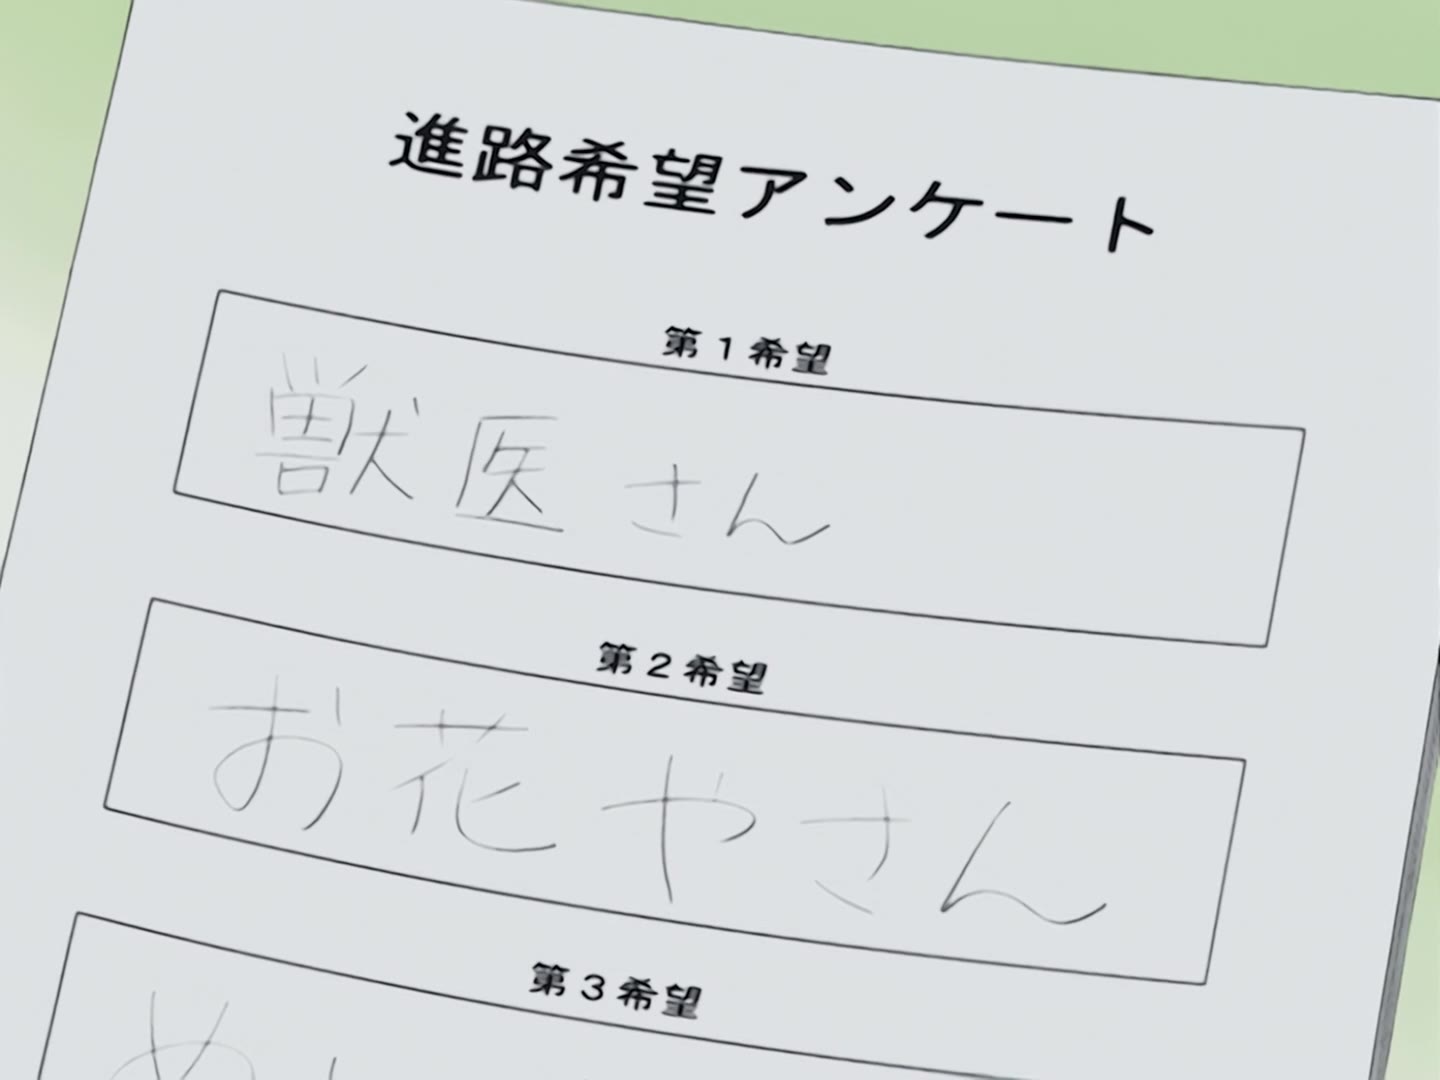 進路希望アンケート
第1希望
獣医さん
第2希望
お花やさん
第3希望